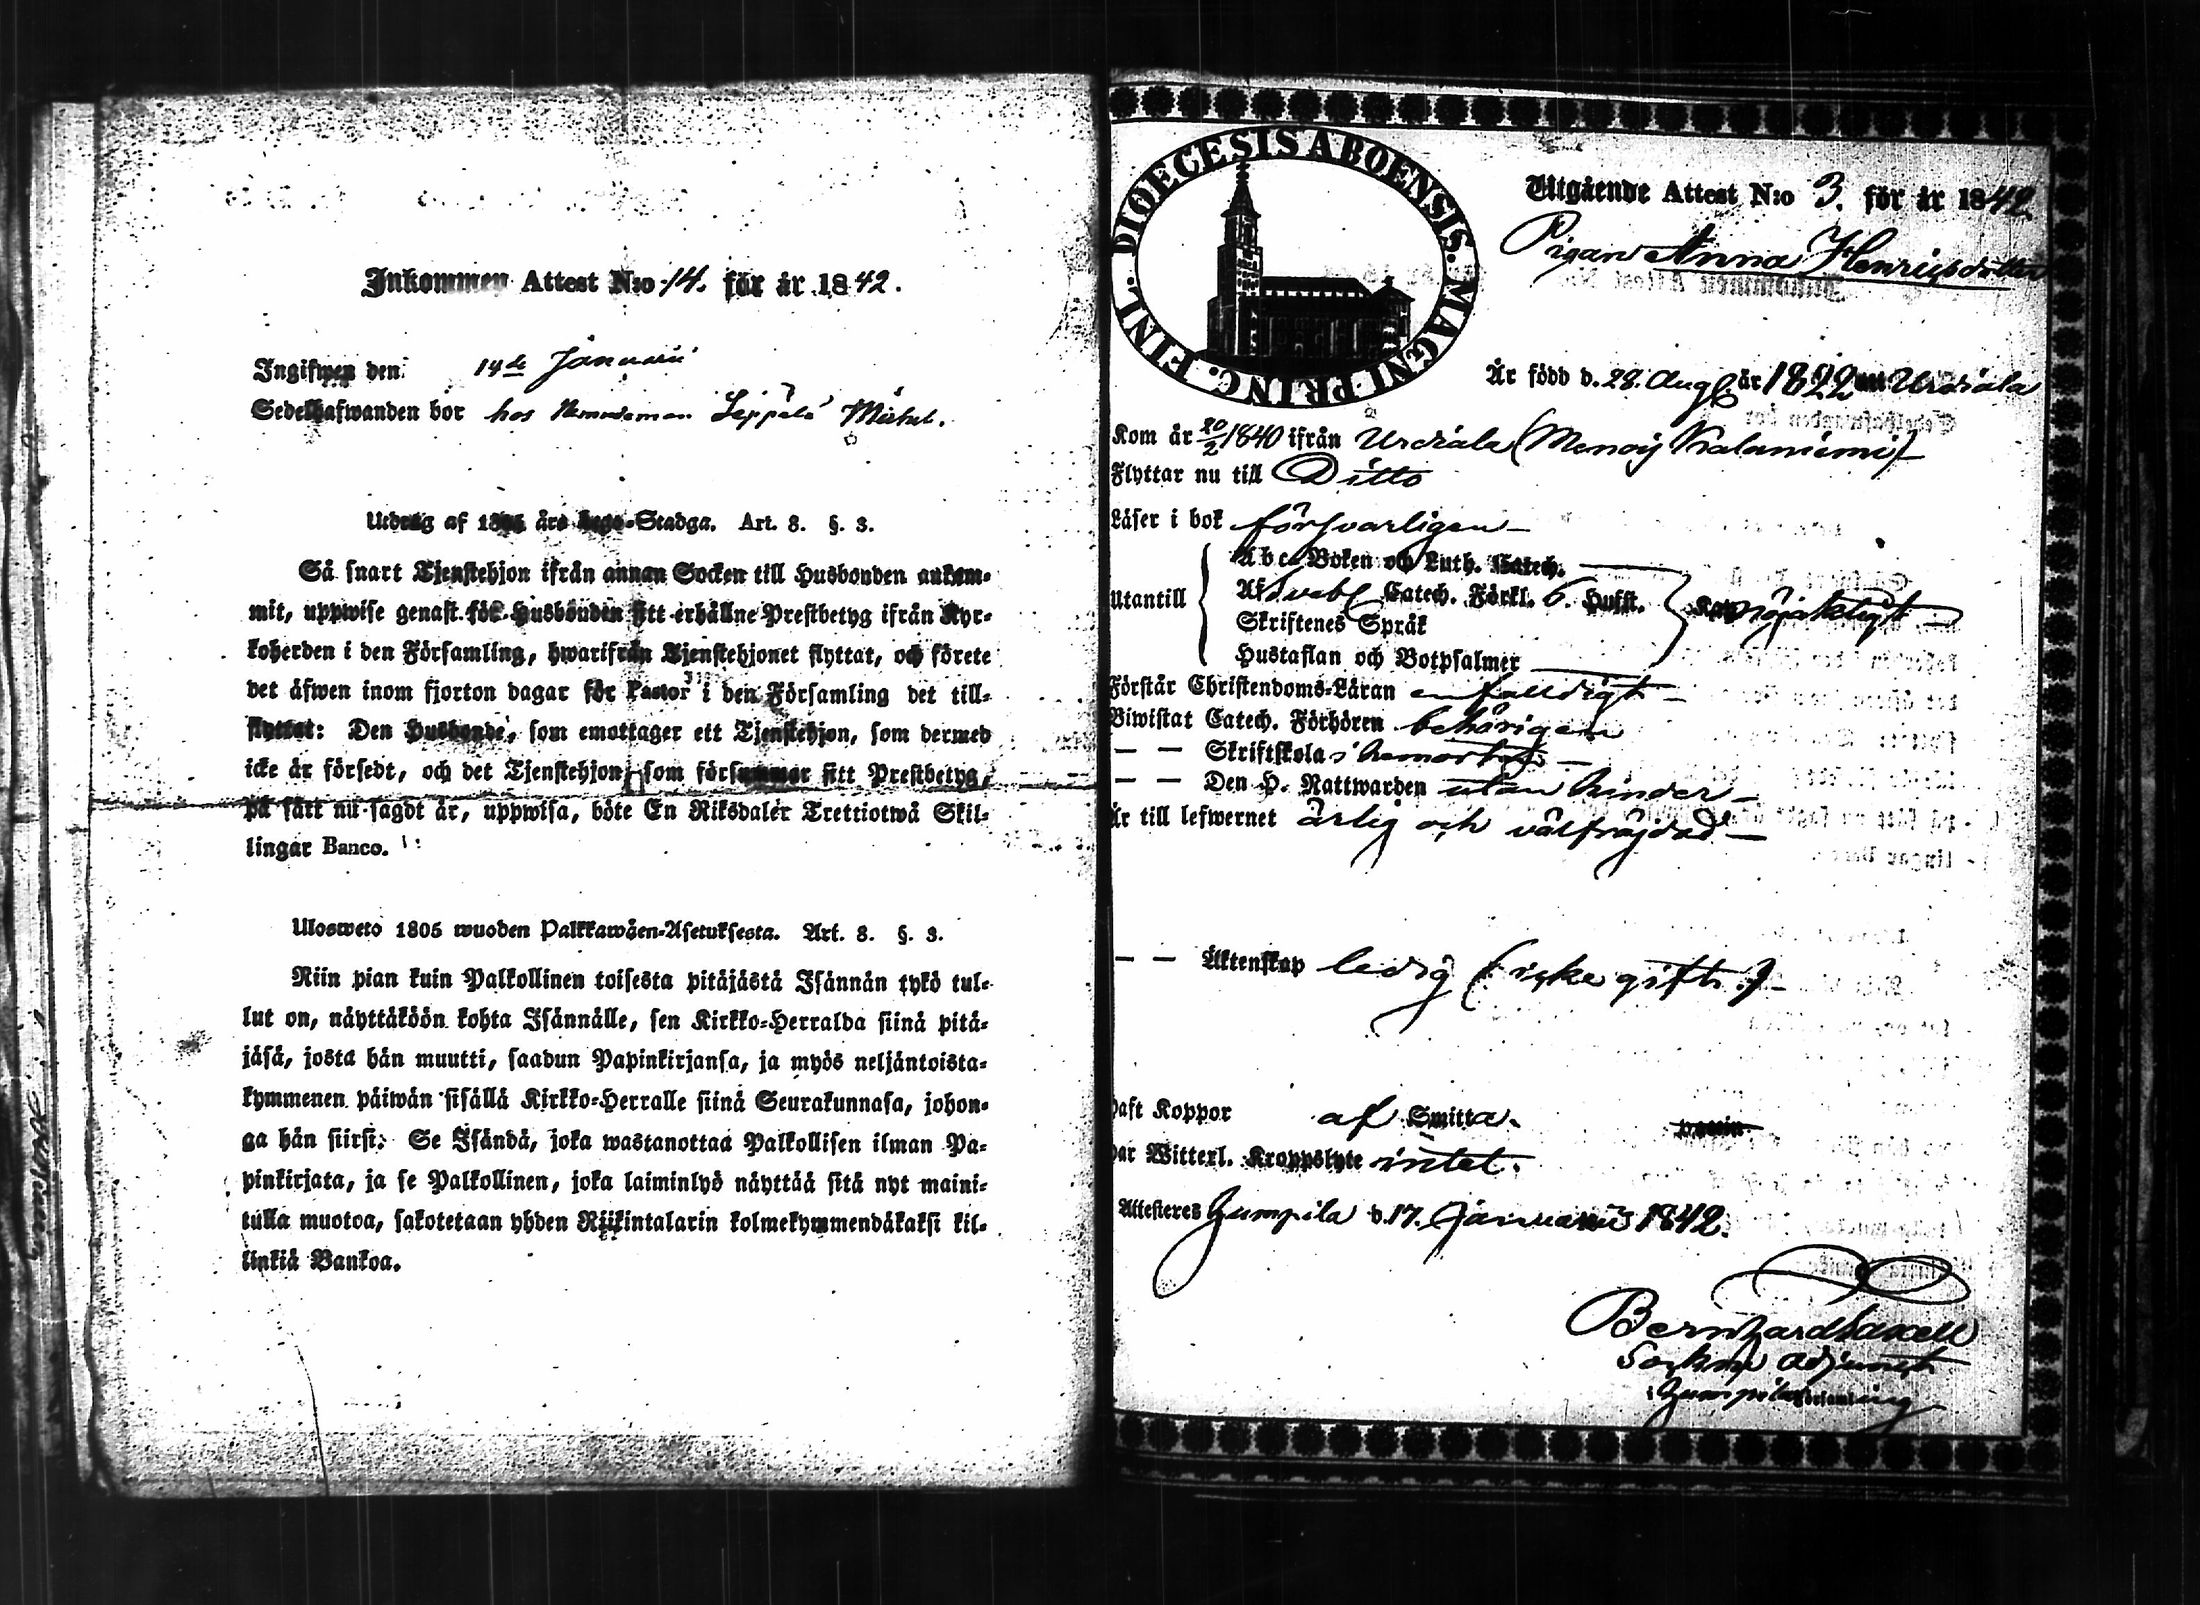 Inkommen Attest N:o 14. för år 1842.
Ingifwen den 14de Januarii
Sedelhafwanden bor hos Nemndeman Seppälä Michel.
Utdrag af 1805 års Lego-Stadga. Art. 8. §. 3.
Så snart Tjenstehjon ifrån annan Socken till Husbonden ankom-
mit, uppwise genast för Husbonden sitt erhållne Prestbetyg ifrån Kyr-
koherden i den Församling, hwarifrån Tjenstehjonet flyttat, och förete
det äfwen inom fjorton dagar för Pastor i den Församling det till-
flyttat: Den Husbonde, som emottager ett Tjenstehjon, som dermed
icke är försedt, och det Tjenstehjon, som försummar sitt Prestbetyg,
på sätt nu sagdt är, uppwisa, böte En Riksdaler Trettiotwå Skil-
lingar Banco.
Ulosweto 1805 wuoden Palkkawäen-Asetuksesta. Art. 8. §. 3.
Niin pian kuin Palkollinen toisesta pitäjästä Isännän tykö tul-
lut on, näyttäköön kohta Isännälle, sen Kirkko-Herralda siinä pitä-
jäsä, josta hän muutti, saadun Papinkirjansa, ja myös neljäntoista-
kymmenen päiwän sisällä Kirkko-Herralle siinä Seurakunnasa, johon-
ga hän siirsi: Se Isändä, joka wastanottaa Palkollisen ilman Pa-
pinkirjata, ja se Palkollinen, joka laiminlyö näyttää sitä nyt maini-
tulla muotoa, sakotetaan yhden Riikintalarin kolmekymmendäkaksi kil-
linkiä Bankoa.
DIOECESIS ABOENSIS. MAGNI PRINC. FINL.
Utgående Attest N:o 3. för år 1842.
Pigan Anna Henricsdotter
Är född d. 28. Aug. år 1822 uti Urdiala
Kom år 20/2 1840 ifrån Urdiala (Menois Kalaniemi)
Flyttar nu till Ditto
Läser i bok försvarligen
Abc-Boken och Luth. Catech.
Utantill Ak Svebel Catech. Förkl. 6. Hufst. nöjaktigt
Skriftenes Språk
Hustaflan och Botpsalmer
Förstår Christendoms-Läran enfaldigt
Biwistat Catech. Förhören behörigen
— — Skriftskola
— — Den H. Nattwarden utan hinder
Är till lefwernet ärlig och välfrägdad
— — Äktenskap ledig (icke gift.)
Haft Koppor af Smitta.
Har Witterl. Kroppslyte intet.
Attesteres Gumpila d. 17. Januarii 1842.
Bernhard Saxell
Sockne Adjunct
i Gumpila Församling